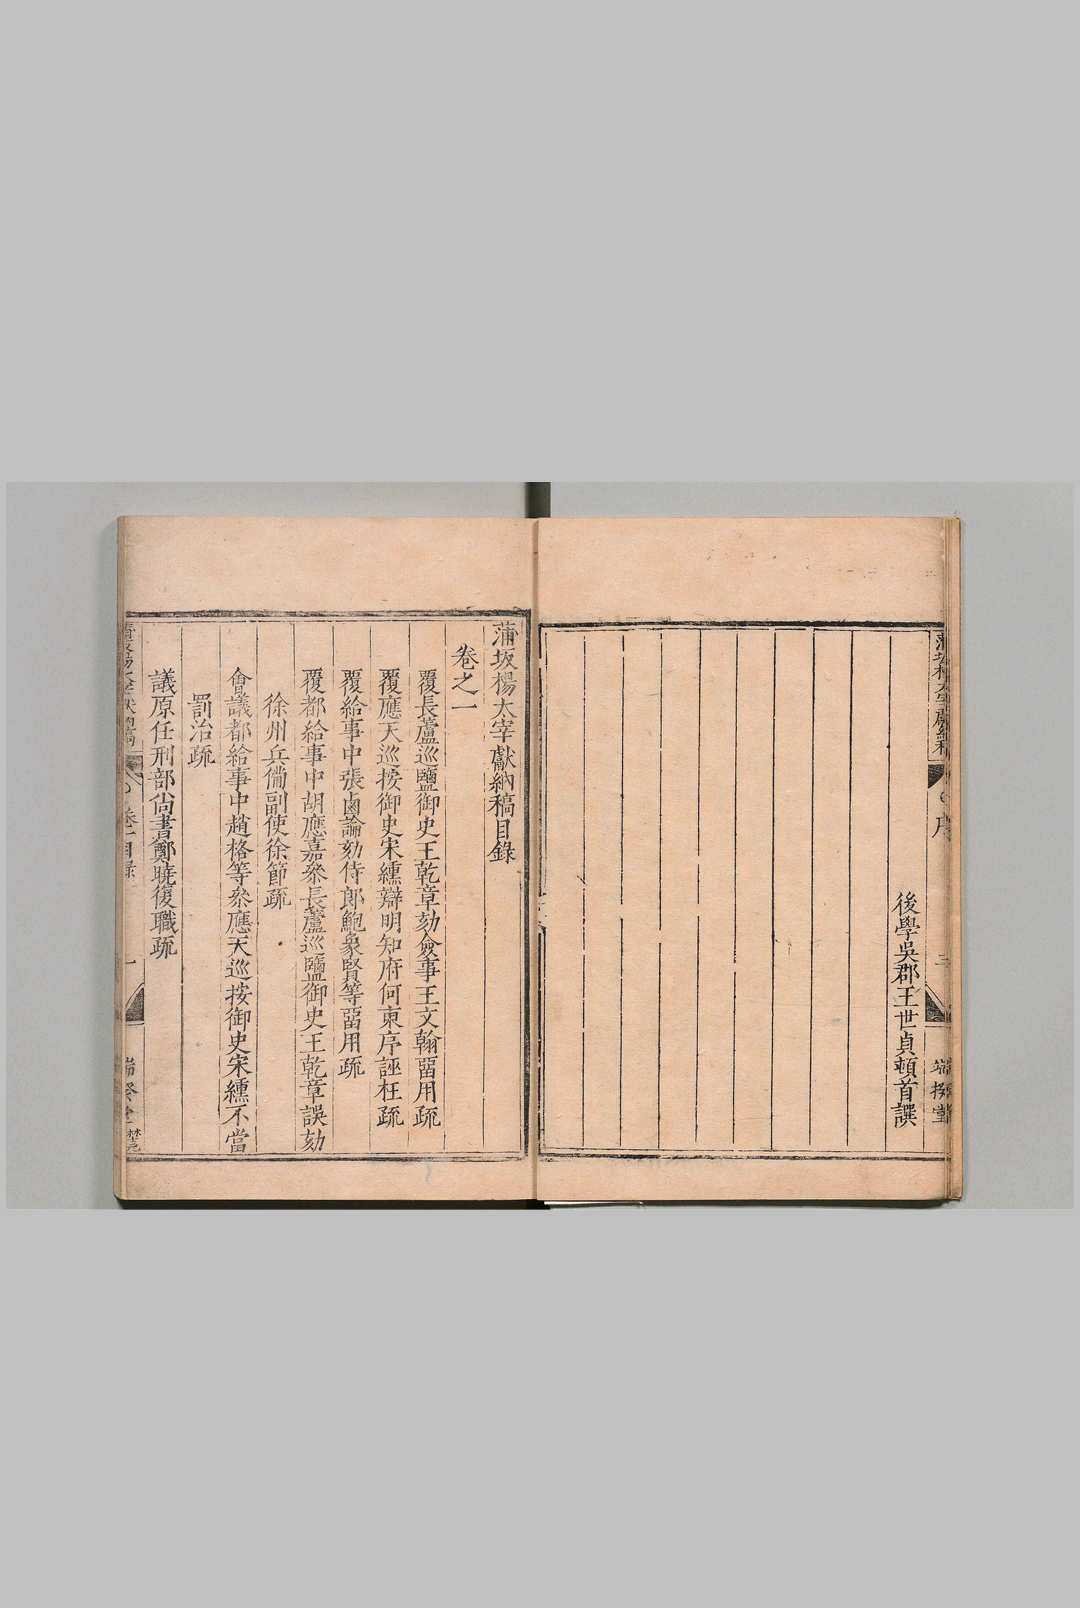 蒲坂楊太宰獻納稿
序
三
端揆堂
後學吳郡王世貞頓首譔
蒲坂楊太宰獻納稿目錄
卷之一
覆長蘆巡鹽御史王乾章劾僉事王文翰畱用疏
覆應天巡按御史宋纁辯明知府何東序誣枉疏
覆給事中張鹵論劾侍郎鮑象賢等畱用疏
覆都給事中胡應嘉叅長蘆巡鹽御史王乾章誤劾
徐州兵備副使徐節疏
會議都給事中趙格等叅應天巡按御史宋纁不當
罰治疏
議原任刑部尚書鄭曉復職疏
卷一目錄
一